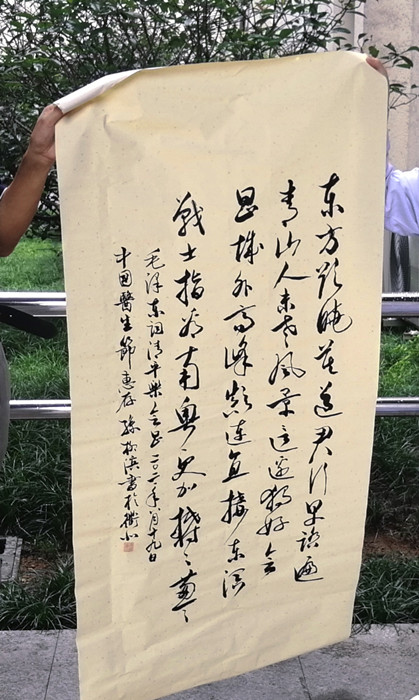 东方欲晓莫道君行早踏遍
青山人未老风景这边独好会
昌城外高峰颠连直接东溟
戰士指看南粤更加欝々葱々
毛泽东词清平樂会昌二〇二一年八月十九日
中国醫生節惠存 書於